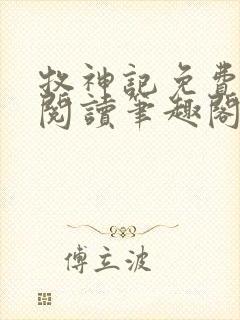 牧神記免費
閱讀筆趣閣
傅立波